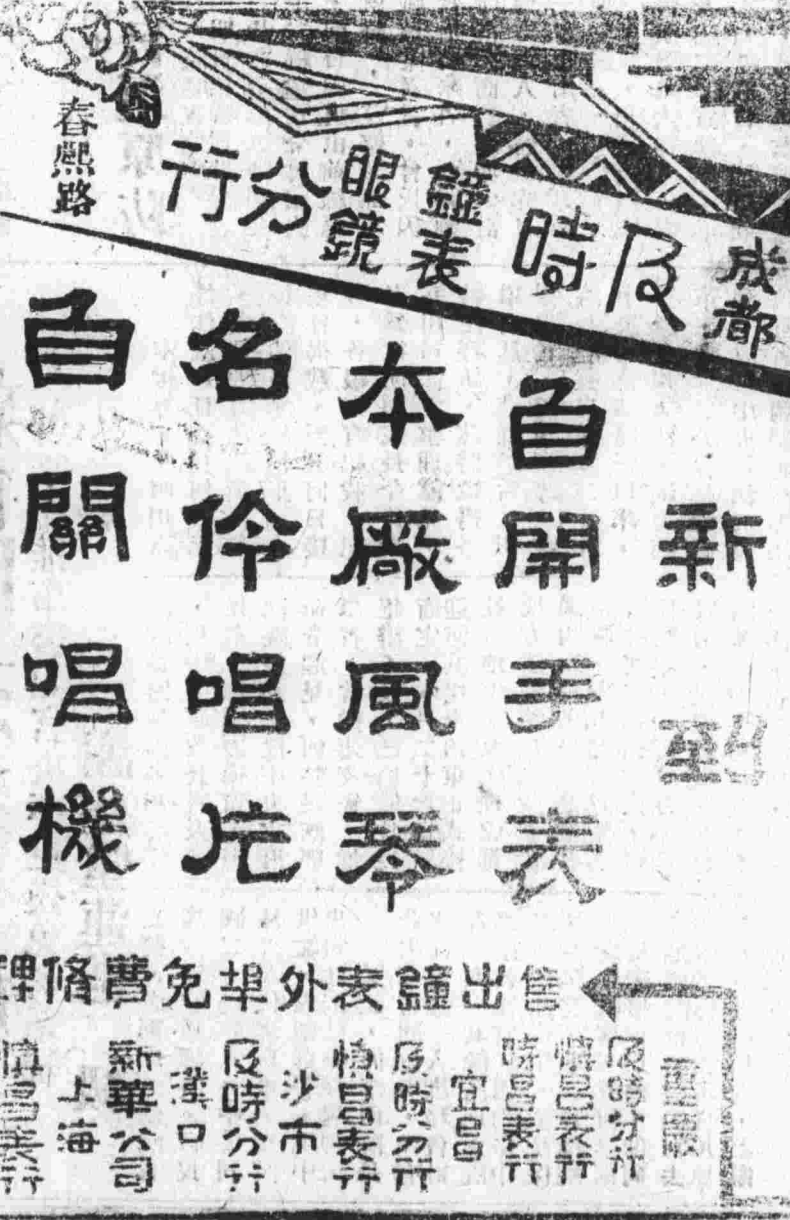 成都
及時鐘表眼鏡分行
春熙路
新到
自開手表
本廠風琴
名伶唱片
自關唱機
售出鐘表外埠免費修理
重慶
及時分行
慎昌表行
時昌表行
宜昌
及時分行
慎昌表行
沙市
及時分行
漢口
新華公司
上海
慎昌表行